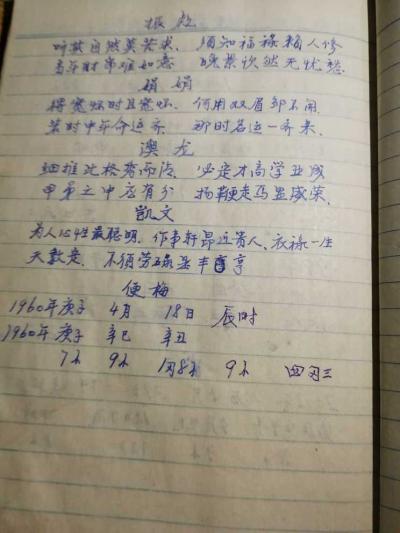 振乾
听其自然莫若求，须知福禄赖人修
青年财帛难如意 晚景欣然无忧愁
娟娟
得宽怀时且宽怀，何用双眉皱不开
若时中年命运齐，那时名运一齐来
澳龙
细推此格秀而清，必定才高学业成
甲第之中应有分，扬鞭走马显威荣
凯文
为人心性最聪明，作事轩昂近贵人，衣禄一生
天数定，不须劳碌是丰亨
便梅
1960年庚子 4月 18日 辰时
1960年庚子 辛巳 辛丑
7不 9不 1匁8不 9不 四匁三